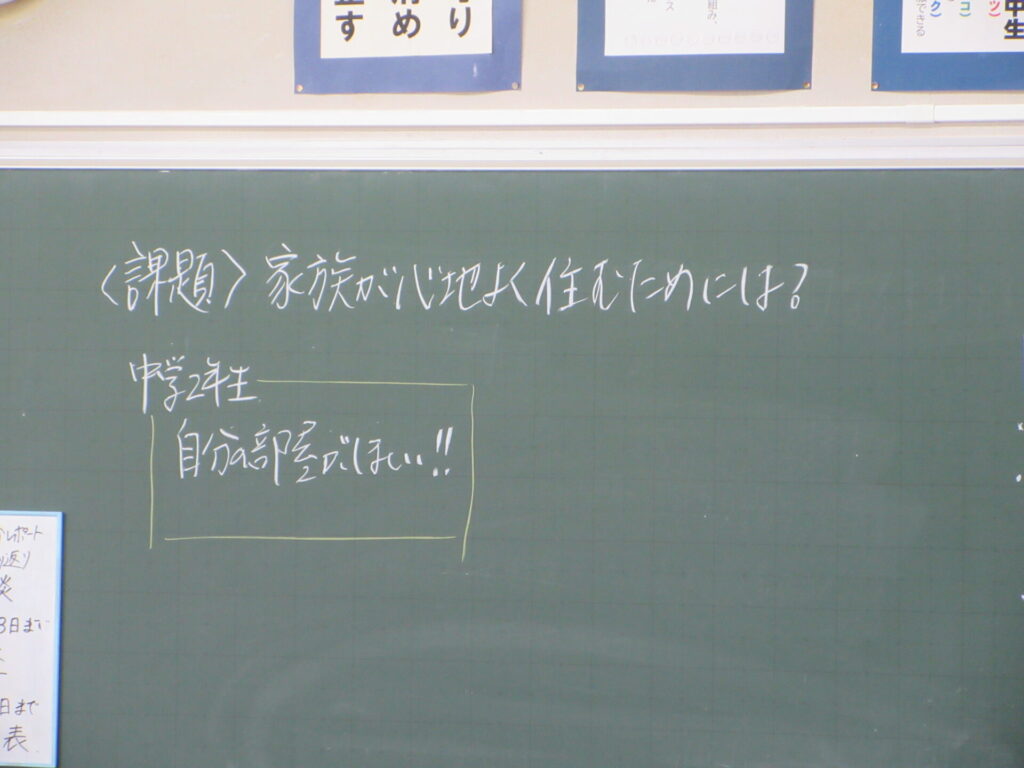 〈課題〉家族が心地よく住むためには?
中学2年生
自分の部屋がほしい!!
レポート
返り
日まで
日まで
表
め
り
す
組み、
ス
中生
ツ)
コ)
ク)